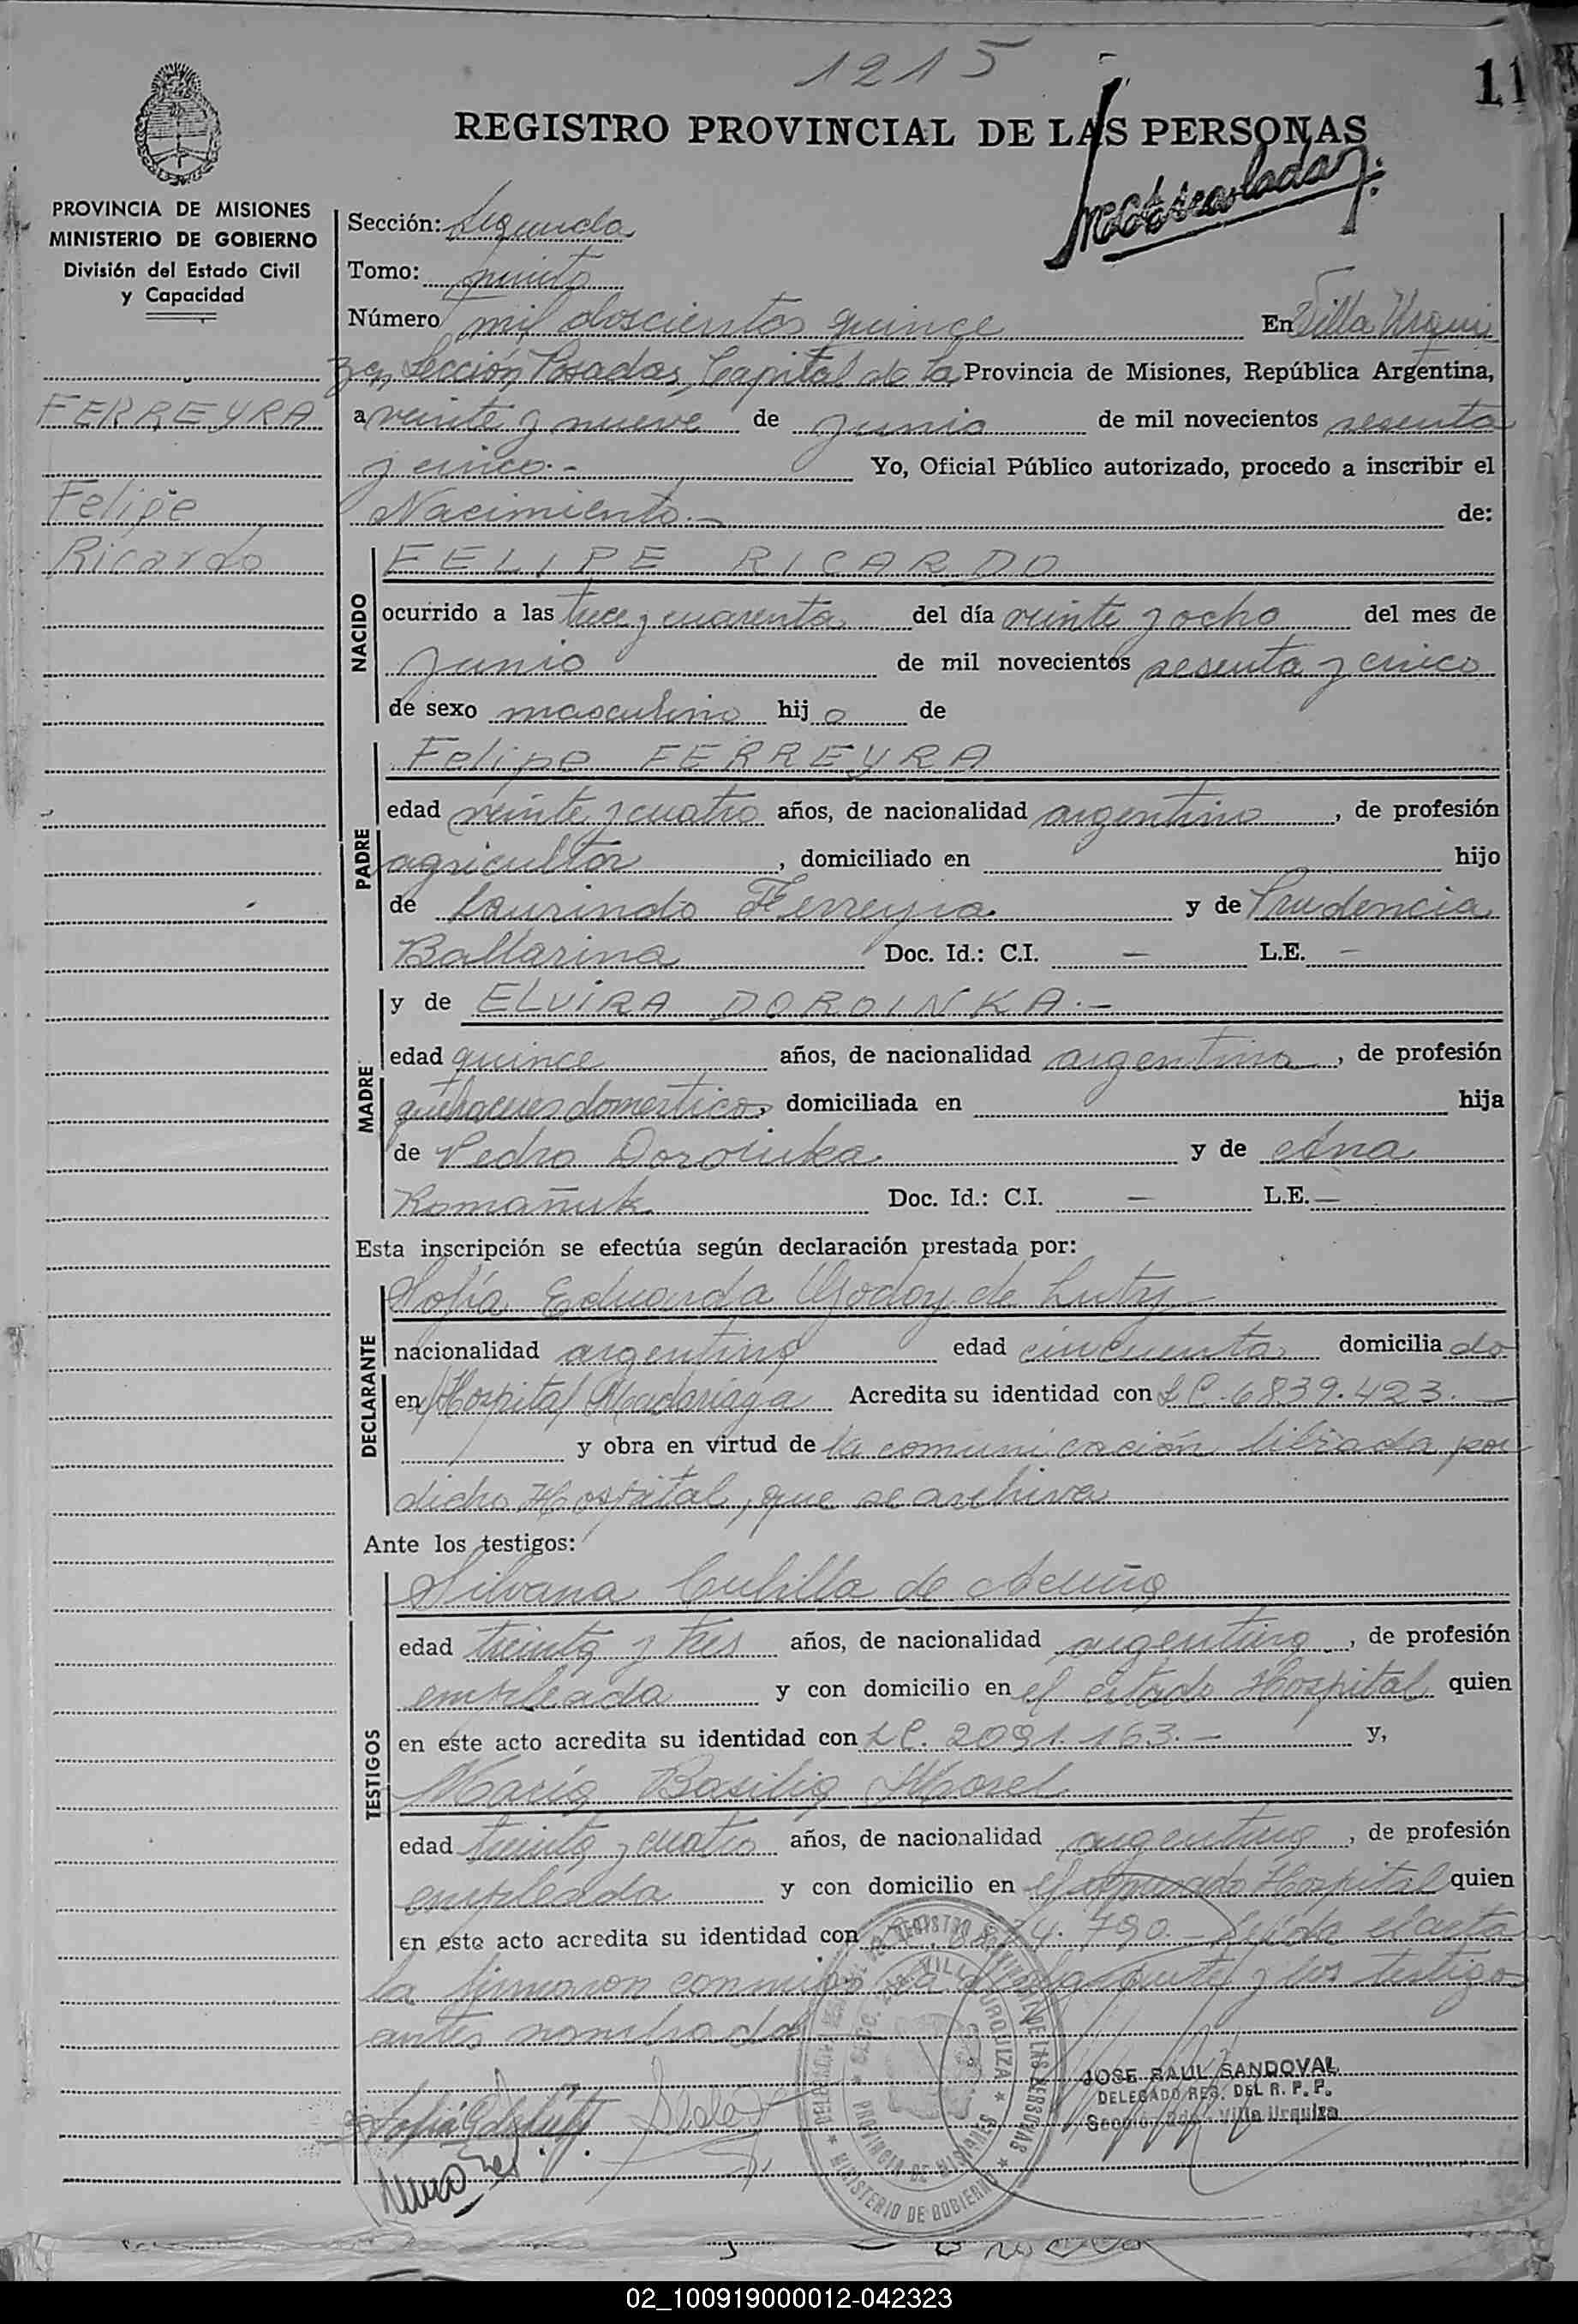 1215
11
REGISTRO PROVINCIAL DE LAS PERSONAS
PROVINCIA DE MISIONES
MINISTERIO DE GOBIERNO
División del Estado Civil
y Capacidad
FERREYRA
Felipe
Ricardo
Sección: Segunda
Tomo: quinto
Número mil doscientos quince En Villa Urqui
za, Sección Posadas, Capital de la Provincia de Misiones, República Argentina,
a veinte y nueve de junio de mil novecientos sesenta
y cinco.- Yo, Oficial Público autorizado, procedo a inscribir el
Nacimiento.- de:
NACIDO
FELIPE RICARDO
ocurrido a las trece y cuarenta del día veinte y ocho del mes de
junio de mil novecientos sesenta y cinco
de sexo masculino hijo de
PADRE
Felipe FERREYRA
edad veinte y cuatro años, de nacionalidad argentino, de profesión
agricultor, domiciliado en hijo
de Laurindo Ferreyra y de Prudencia
Ballarina Doc. Id.: C.I. - L.E. -
MADRE
y de ELVIRA DOROINKA.-
edad quince años, de nacionalidad argentina, de profesión
quehaceres domesticos, domiciliada en hija
de Pedro Doroinka y de
Romañuk Doc. Id.: C.I. - L.E. -
Esta inscripción se efectúa según declaración prestada por:
DECLARANTE
Sofía Eduarda Godoy de Lutz
nacionalidad argentina edad cincuenta domiciliado
en Hospital Madariaga Acredita su identidad con L.C. 6839.423.-
y obra en virtud de la comunicación librada por
dicho Hospital, que se archiva
Ante los testigos:
TESTIGOS
Silvana Cubilla de Acuña
edad treinta y tres años, de nacionalidad argentina, de profesión
empleada y con domicilio en el citado Hospital quien
en este acto acredita su identidad con L.C. 2091.163.- y,
María Basilia Morel
edad treinta y cuatro años, de nacionalidad argentina, de profesión
empleada y con domicilio en el Hospital quien
en este acto acredita su identidad con 790.- Leída el acta
la firmaron conmigo la y los testigos
antes nombrados
JOSE RAUL SANDOVAL
DELEGADO REG. DEL R. P. P.
Sección 2da. - Villa Urquiza
MINISTERIO DE GOBIERNO
PROVINCIA DE MISIONES
02_100919000012-042323